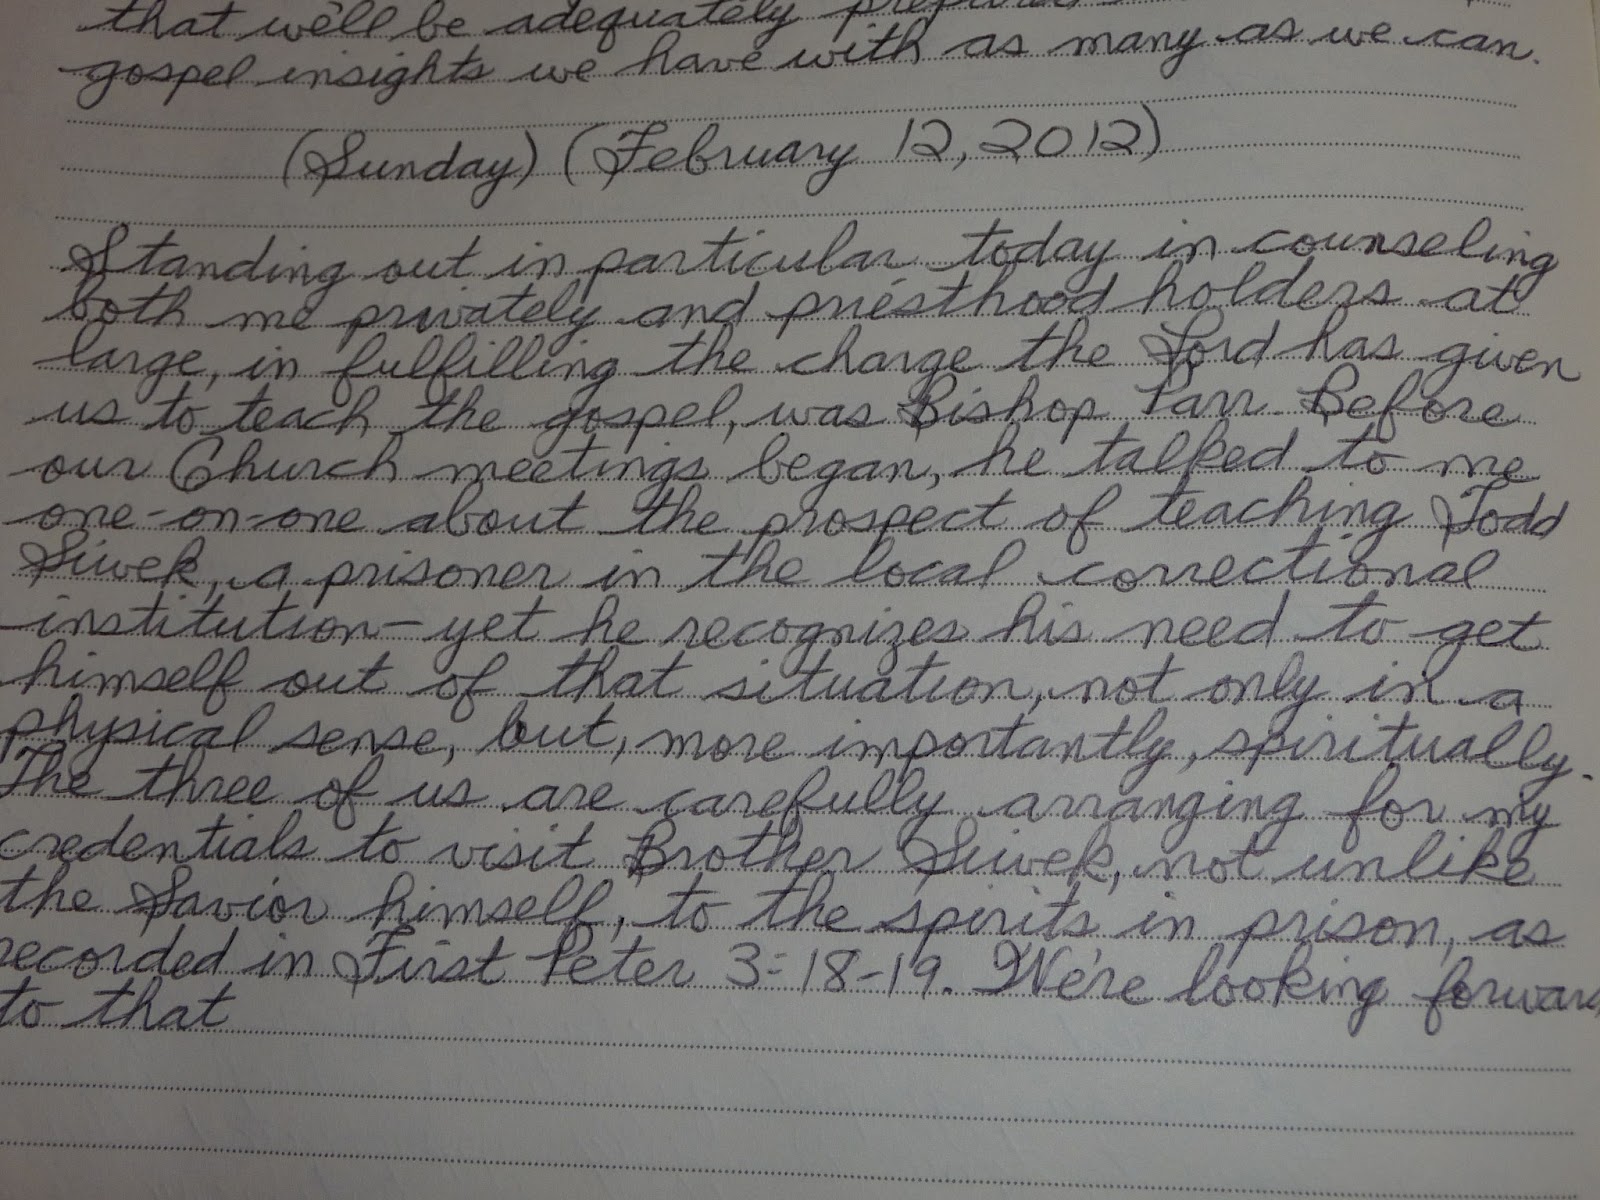 that we'll be adequately prepared
gospel insights we have with as many as we can.
(Sunday) (February 12, 2012)
Standing out in particular today in counseling
both me privately and priesthood holders at
large, in fulfilling the charge the Lord has given
us to teach the gospel, was Bishop Parr. Before
our Church meetings began, he talked to me
one-on-one about the prospect of teaching Todd
Siwek, a prisoner in the local correctional
institution—yet he recognizes his need to get
himself out of that situation, not only in a
physical sense, but, more importantly, spiritually.
The three of us are carefully arranging for my
credentials to visit Brother Siwek, not unlike
the Savior himself, to the spirits in prison, as
recorded in First Peter 3:18-19. We're looking forward
to that